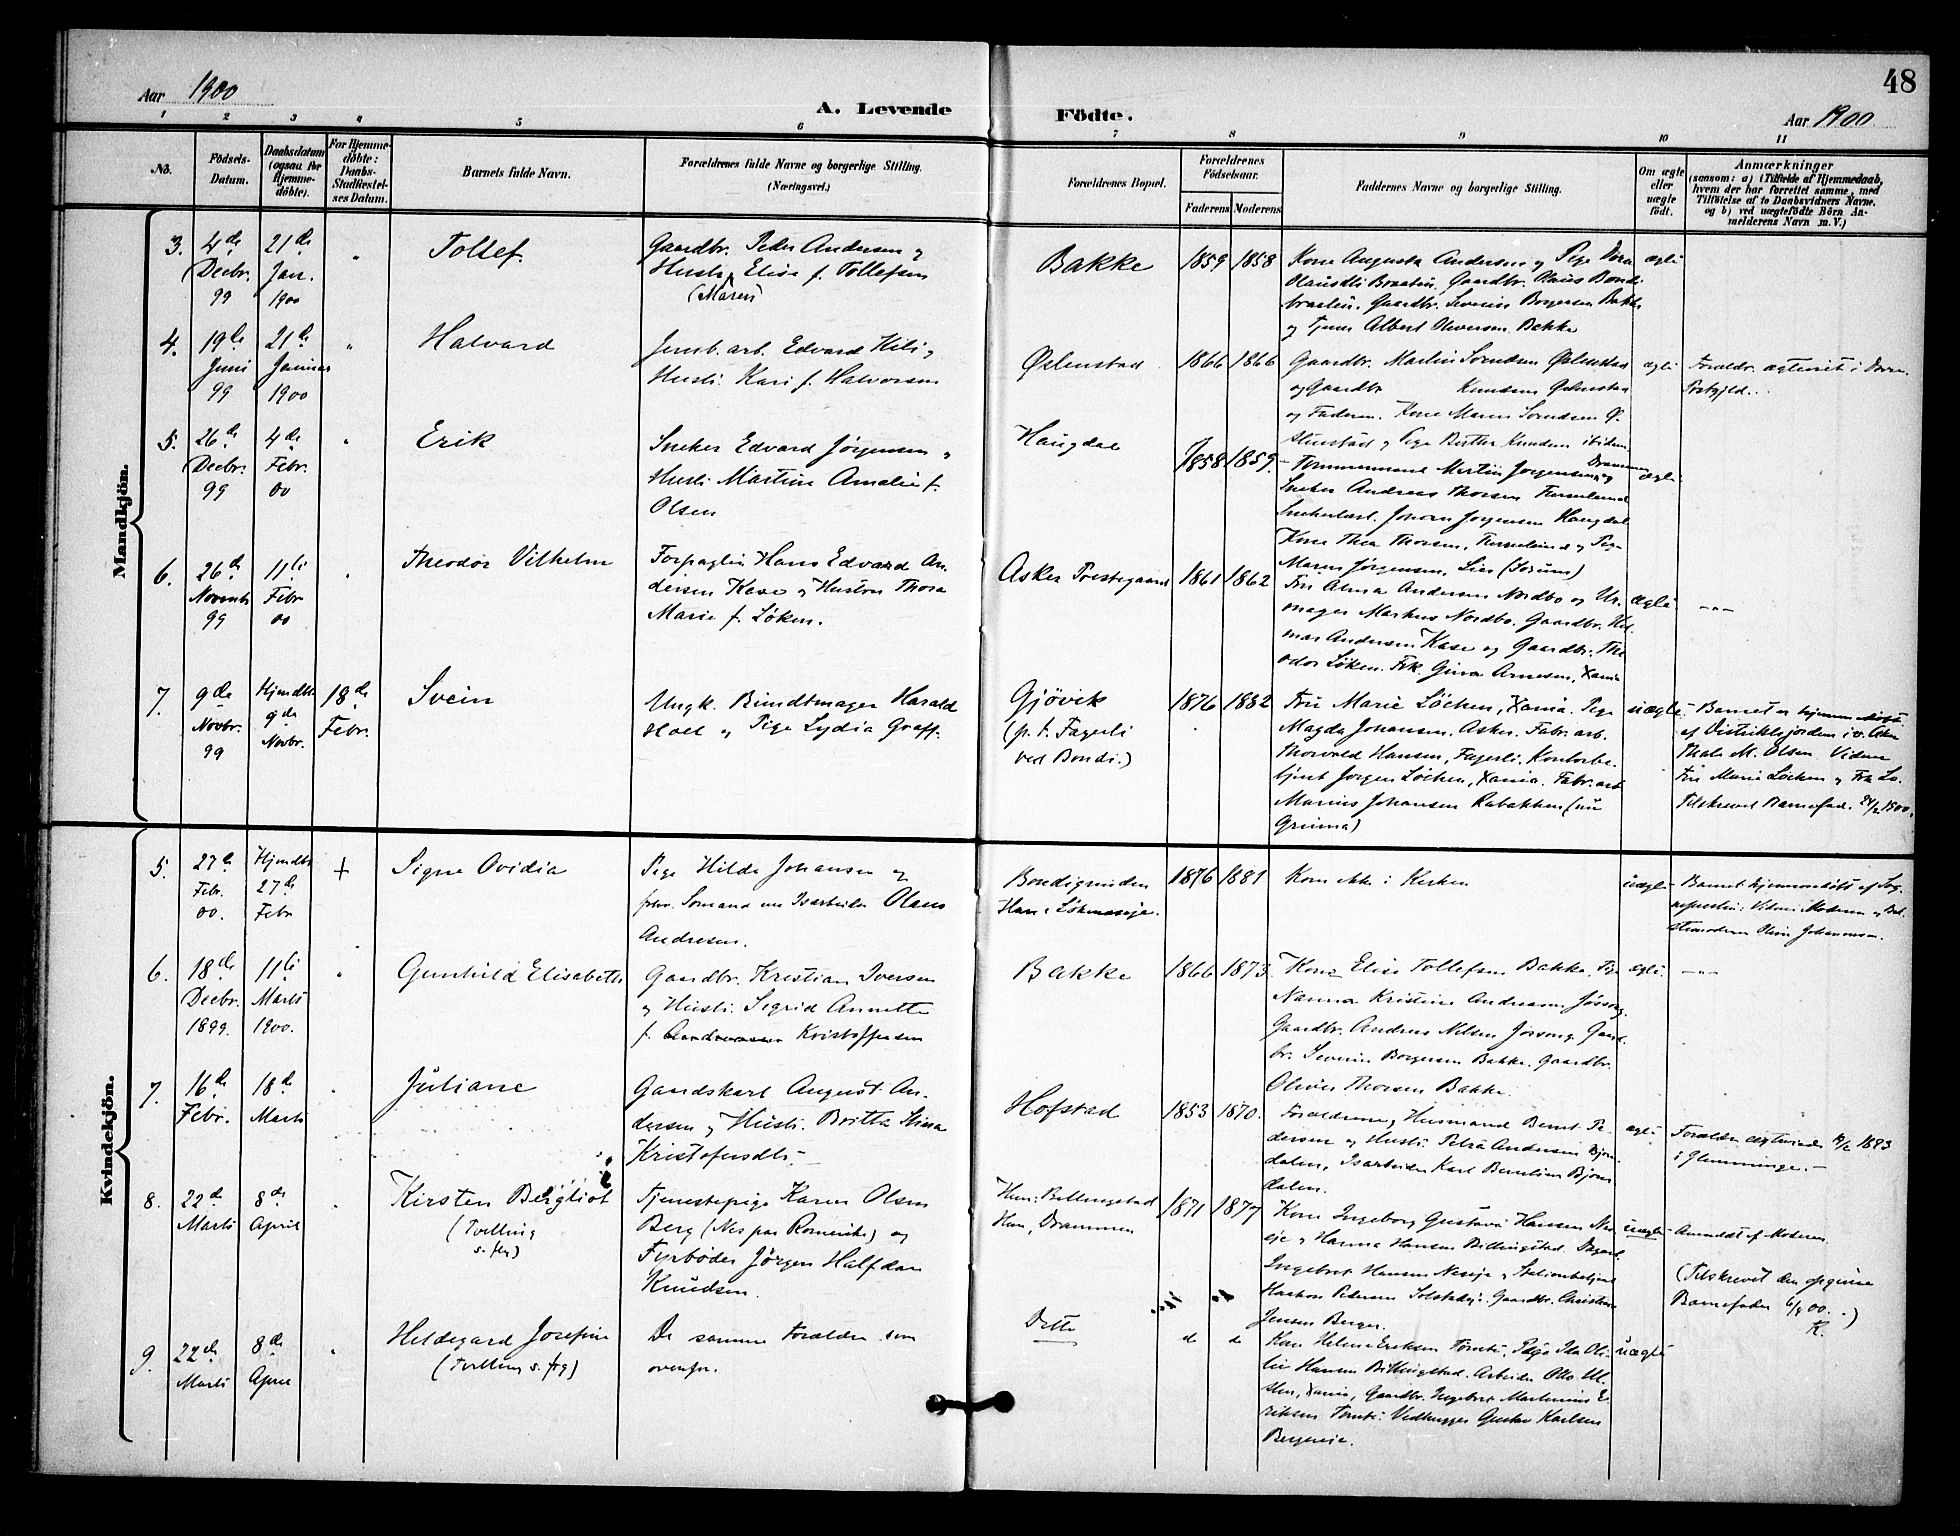 48
Aar 1900
A. Levende Födte.
Aar 1900
1 2 3 4 5 6 7 8 9 10 11
No.
Födsels-
Datum.
Daabsdatum
(ogsaa for
Hjemme-
döbte).
For Hjemme-
döbte:
Daabs-
Stadfæstel-
ses Datum.
Barnets fulde Navn.
Forældrenes fulde Navne og borgerlige Stilling.
(Næringsvei.)
Forældrenes Bopæl.
Forældrenes
Födselsaar.
Faderens Moderens
Faddernes Navne og borgerlige Stilling.
Om ægte
eller
uægte
födt.
Anmærkninger
(saasom: a) i Tilfælde af Hjemmedaab,
hvem der har forrettet samme, med
Tilföielse af to Daabsvidners Navne.
og b) ved uægtefödte Börn An-
melderens Navn m. V.)
Mandkjön.
3.
4de
Decbr.
99
21de
Jan.
1900
Tollef.
Gaardbr. Peder Andersen og
Hustr. Elise f. Tollefsen
(Maren)
Bakke
1859 1858
Kone Augusta Andersen og Pige
Gaardbr. Olaus Bondi
Gaardbr. Severin Borgersen Bakke
og Tjener Albert Oliversen Bakke
ægte
4.
19de
Juni
99
21de
Januar
1900
Halvard
Jernb. arb. Edvard
Hustr. Kari f. Halvorsen
1866 1866
Gaardbr. Martin Svendsen
og Gaardbr Knudsen
og Faderen. Kone Maren Svendsen
og Pige Berthe Knudsen ibidem
ægte
5.
26de
Decbr.
99
4de
Febr.
00
Erik
Sneker Edvard Jörgensen og
Hustr. Martine Amalie f.
Olsen
Haugdal
1858 1859.
Tømmermand Martin Jorgensen, Drammen
Sneker Andreas Thorsen
Snekerlærl. Johan Jorgensen Haugdal.
Kone Thea Thorsen, og Pige
Maren Jorgensen, Lier
ægte
6.
26de
Novemb
99
11te
Febr
00
Theodor Vilhelm
Forpagter Hans Edvard An-
dersen Kase og Hustru Thora
Marie f. Löken.
Asker Præstegaard
1861 1862
Fru Alma Andersen Nordbo og Ur-
mager Markus Nordbo. Gaardbr. Hil-
mar Andersen Kase og Gaardbr. The-
odor Löken. Frk. Gina Arnesen, Xania
ægte
7.
9de
Novbr.
99
Hjemdbt
9de
Novbr.
18de
Febr.
Svein
Ungk. Bundtmager Harald
Hoel og Pige Lydia Graff.
Gjövik
(p. t. Fagerli
ved Bondi.)
1876 1882
Fru Marie Löchen, Xania. Pige
Magda Johansen, Asker. Fabr. arb.
Thorvald Hansen, Fagerli. Kontorbe-
tjent Jorgen Löchen, Xania. Fabr. arb
Marius Johansen Rabakken (nu
Grinia)
uægte
Barnet er hjemmedöbt
af Distriktsjordem. i v. Asker
Thale M. Olsen. Vidner
Fru Marie Löchen og Frk Lö.
Tilskrevet Barnefad. 24/2 1900.
Kvindekjön.
5.
27de
Febr.
00.
Hjemdbt
27de
Febr
+
Signe Ovidia
Pige Hilda Johansen og
Isarbeider Olaus
Andresen.
Bondigrinden
1876 1881
Kom ikke i Kirken
uægte
Barnet hjemmedöbt af Sog-
nepresten: Vidner Moderen og Bed-
stemoderen Johannesen.
6.
18de
Decbr.
1899.
11te
Marts
1900.
Gunhild Elisabeth
Gaardbr. Kristian Iversen
og Hustr. Sigrid Annette
f. Kristoffersen
Bakke
1866 1873.
Kone Elise Tollefsen Bakke. Pige
Nanna Kristine Andreasen Jossong.
Gaardbr. Andreas Nilsen Jossong. Gaard-
br. Severin Borgersen Bakke. Gaardbr.
Oliver Thorsen Bakke.
ægte
7.
16de
Febr.
18de
Marts
Juliane
Gaardskarl August An-
dersen og Hustr. Britta Stina
Kristofersdtr.
Hofstad
1853 1870.
Forældrene, Husmand Bernt Pe-
dersen og Hustr. Petra Andersen Bjon-
dalen, Isarbeider Karl Berntsen Bjon-
dalen.
ægte
Forældre ægteviede 1893
i Glemminge.
8.
22de
Marts
8de
April
Kirsten Bergliot
(Tvilling
s. flg)
Tjenestepige Karen Olsen
Berg (Nes paa Romerike) og
Fyrböder Jörgen Halfdan
Knudsen.
Hun: Billingstad
Han, Drammen
1871 1877
Kone Ingeborg Gustava Hansen Nes-
öje og Hanna Hansen Billingstad.
Ingebret Hansen Nesöje og Stationsbetjent
Haakon Pedersen Solstad. Gaardbr. Christian
Jensen Berger.
uægte
Anmeldt af Moderen.
(Tilskrevet den opgivne
Barnefader 6/4 00.)
9.
22de
Marts
8de
April
Hildegard Josefine
(Tvilling s. frg)
De samme Forældre som
ovenfor.
Dette
Kone Helene Eriksen Tomte. Pige Ida Oli-
vie Hansen Billingstad. Arbeider Otto
Xania, Gaardbr. Ingebret Martinius E-
riksen Tomte. Vedhugger Gustav Karlsen
Bergereie.
uægte